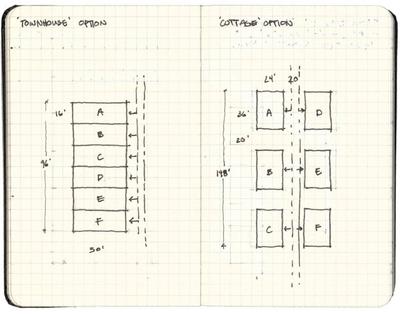 'TOWNHOUSE' OPTION
16'
96'
A
B
C
D
E
F
30'
'COTTAGE' OPTION
24' 20'
36'
20'
148'
A D
B E
C F